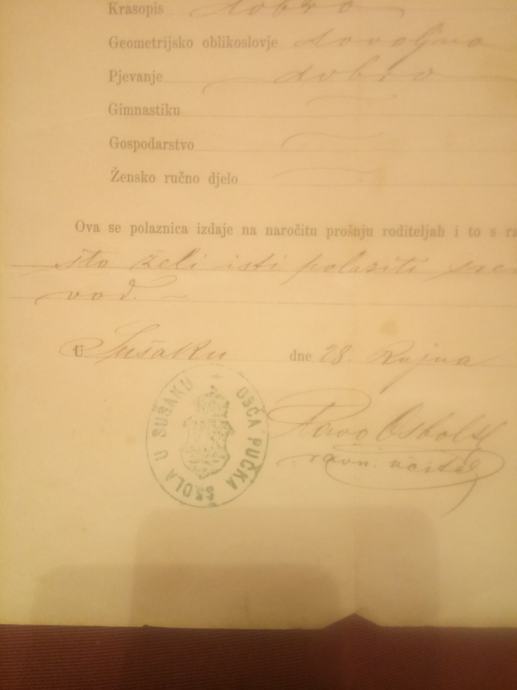 Krasopis dobro
Geometrijsko oblikoslovje dovoljno
Pjevanje dobro
Gimnastiku
Gospodarstvo
Žensko ručno djelo
Ova se polaznica izdaje na naročitu prošnju roditeljah i to s
što želi isti polaziti
vod.
U Sušaku dne 28. Rujna
OBĆA PUČKA ŠKOLA U SUŠAKU
ravn. učitelj